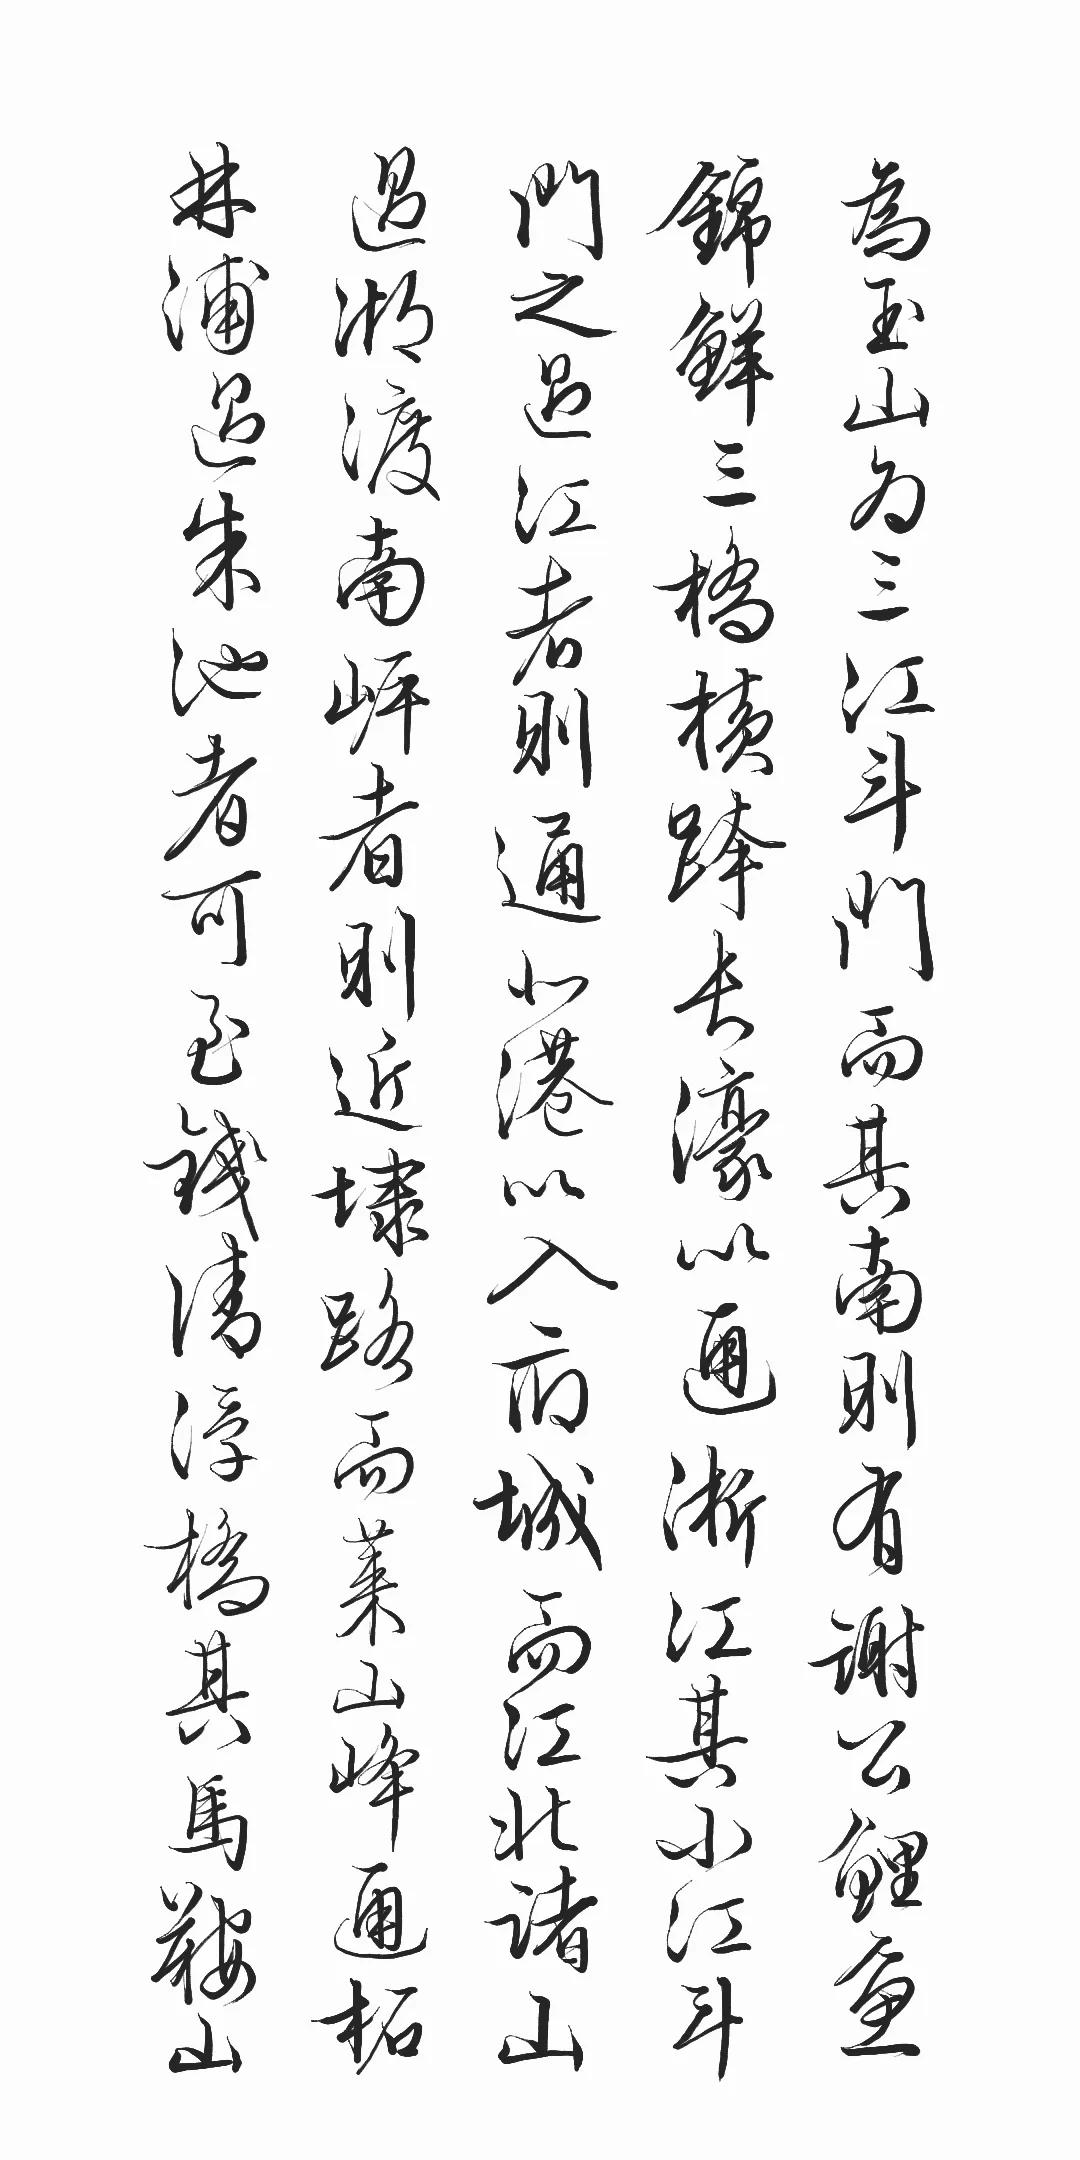 為玉山為三江斗門而其南則有謝公鯉魚
錦鱗三橋橫跨長濠以通浙江其小江斗
門之過江者則通小港以入府城而江北諸山
過湖渡南岸者則近埭路而菜山峰通柘
林浦過朱池者可至錢清浮橋其馬鞍山